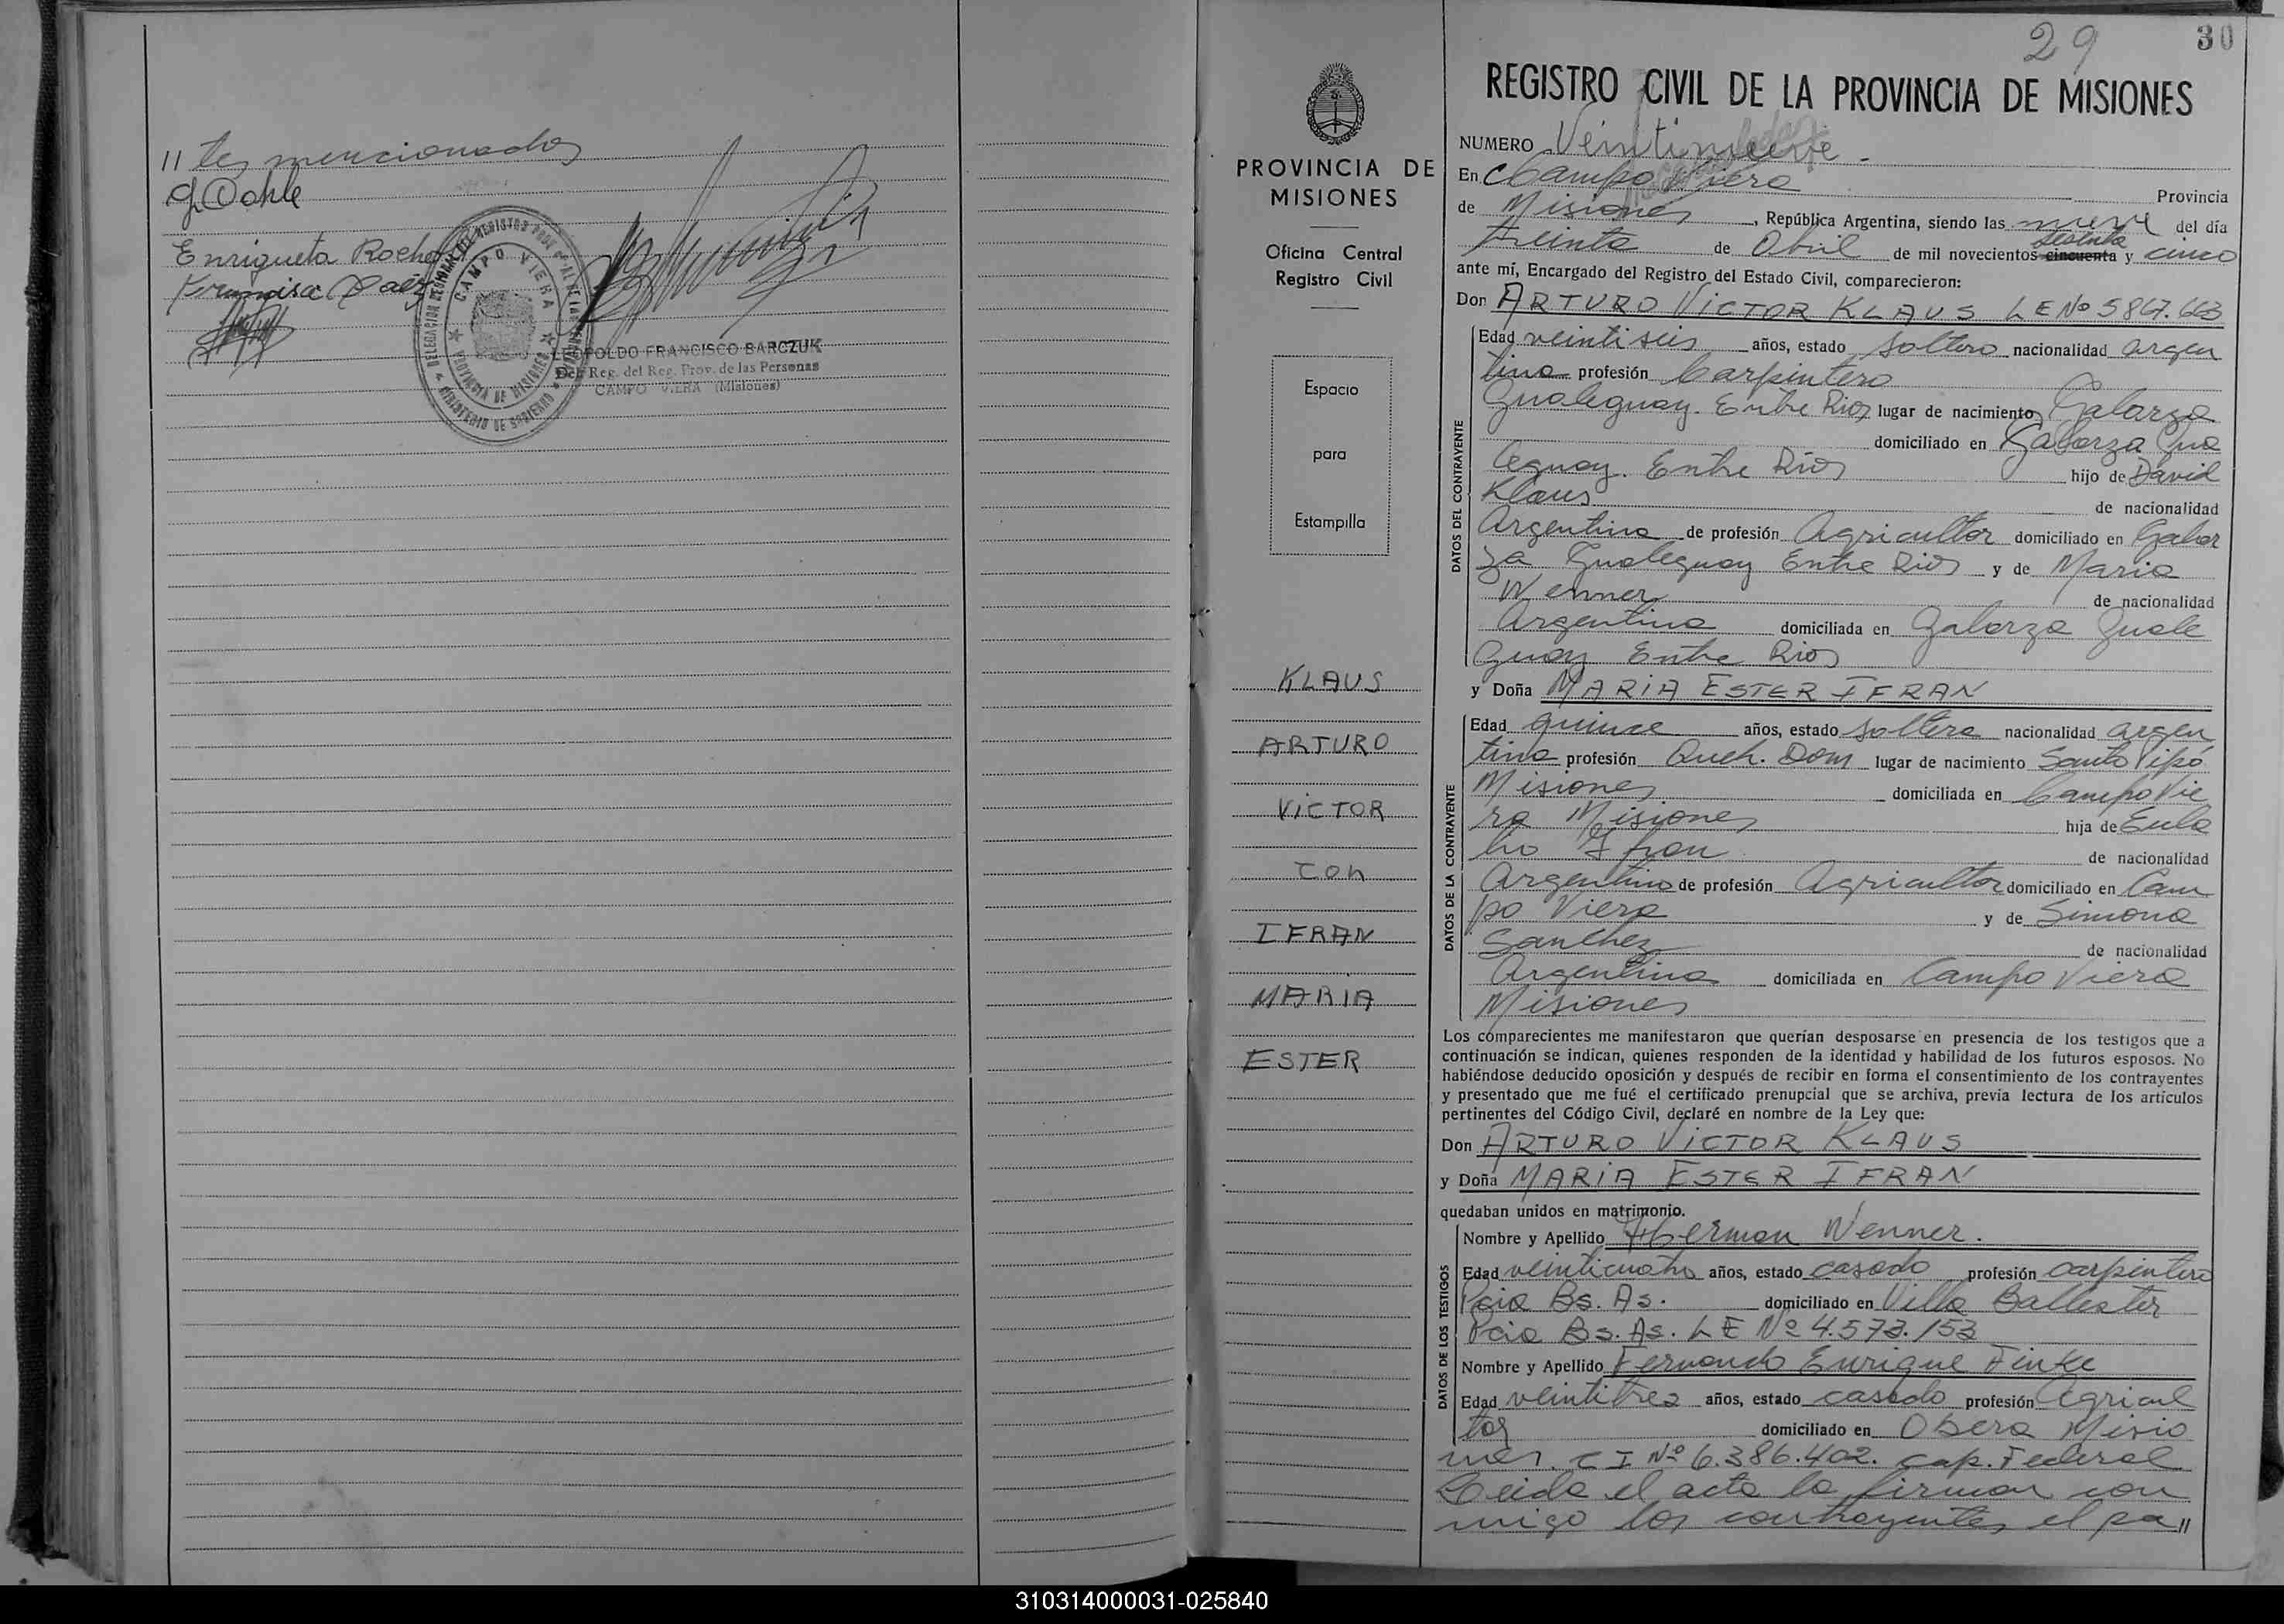 // tes mencionados
G Dohle
Enriqueta Roche
Francisca Paez
CAMPO VIERA
PROVINCIA DE MISIONES
MINISTERIO DE GOBIERNO
LEOPOLDO FRANCISCO BARCZUK
Del. Reg. del Reg. Prov. de las Personas
CAMPO VIERA (Misiones)
PROVINCIA DE
MISIONES
Oficina Central
Registro Civil
Espacio
para
Estampilla
KLAUS
ARTURO
VICTOR
con
IFRAN
MARIA
ESTER
29 30
REGISTRO CIVIL DE LA PROVINCIA DE MISIONES
NUMERO Veintinueve -
En Campo Viera Provincia
de Misiones, República Argentina, siendo las nueve del día
sesenta
treinta de Abril de mil novecientos cincuenta y cinco
ante mí, Encargado del Registro del Estado Civil, comparecieron:
Don ARTURO VICTOR KLAUS LE Nº 5867.663
DATOS DEL CONTRAYENTE
Edad veintiseis años, estado soltero nacionalidad argen
tina profesión Carpintero
Gualeguay. Entre Rios lugar de nacimiento Galarza
domiciliado en Galarza Gua
leguay. Entre Rios hijo de David
Klaus de nacionalidad
Argentina de profesión Agricultor domiciliado en Galar
za Gualeguay Entre Rios y de Maria
Wenner de nacionalidad
Argentina domiciliada en Galarza Guale
guay Entre Rios
y Doña MARIA ESTER IFRAN
DATOS DE LA CONTRAYENTE
Edad quince años, estado soltera nacionalidad argen
tina profesión Queh. Dom lugar de nacimiento Santo Pipó
Misiones domiciliada en Campo Vie
ra Misiones hija de Eula
lio Ifran de nacionalidad
Argentina de profesión Agricultor domiciliado en Cam
po Viera y de Simona
Sanchez de nacionalidad
Argentina domiciliada en Campo Viera
Misiones
Los comparecientes me manifestaron que querían desposarse en presencia de los testigos que a
continuación se indican, quienes responden de la identidad y habilidad de los futuros esposos. No
habiéndose deducido oposición y después de recibir en forma el consentimiento de los contrayentes
y presentado que me fué el certificado prenupcial que se archiva, previa lectura de los artículos
pertinentes del Código Civil, declaré en nombre de la Ley que:
Don ARTURO VICTOR KLAUS
y Doña MARIA ESTER IFRAN
quedaban unidos en matrimonio.
DATOS DE LOS TESTIGOS
Nombre y Apellido Herman Wenner.
Edad veinticuatro años, estado casado profesión carpintero
Pcia Bs. As. domiciliado en Villa Ballester
Pcia Bs. As. LE Nº 4.573.153
Nombre y Apellido Fernando Enrique Finke
Edad veintitres años, estado casado profesión Agricul
tor domiciliado en Obera Misio
nes. CI Nº 6.386.402. Cap. Federal
Leida el acta la firman con
migo los contrayentes, el pa //
310314000031-025840